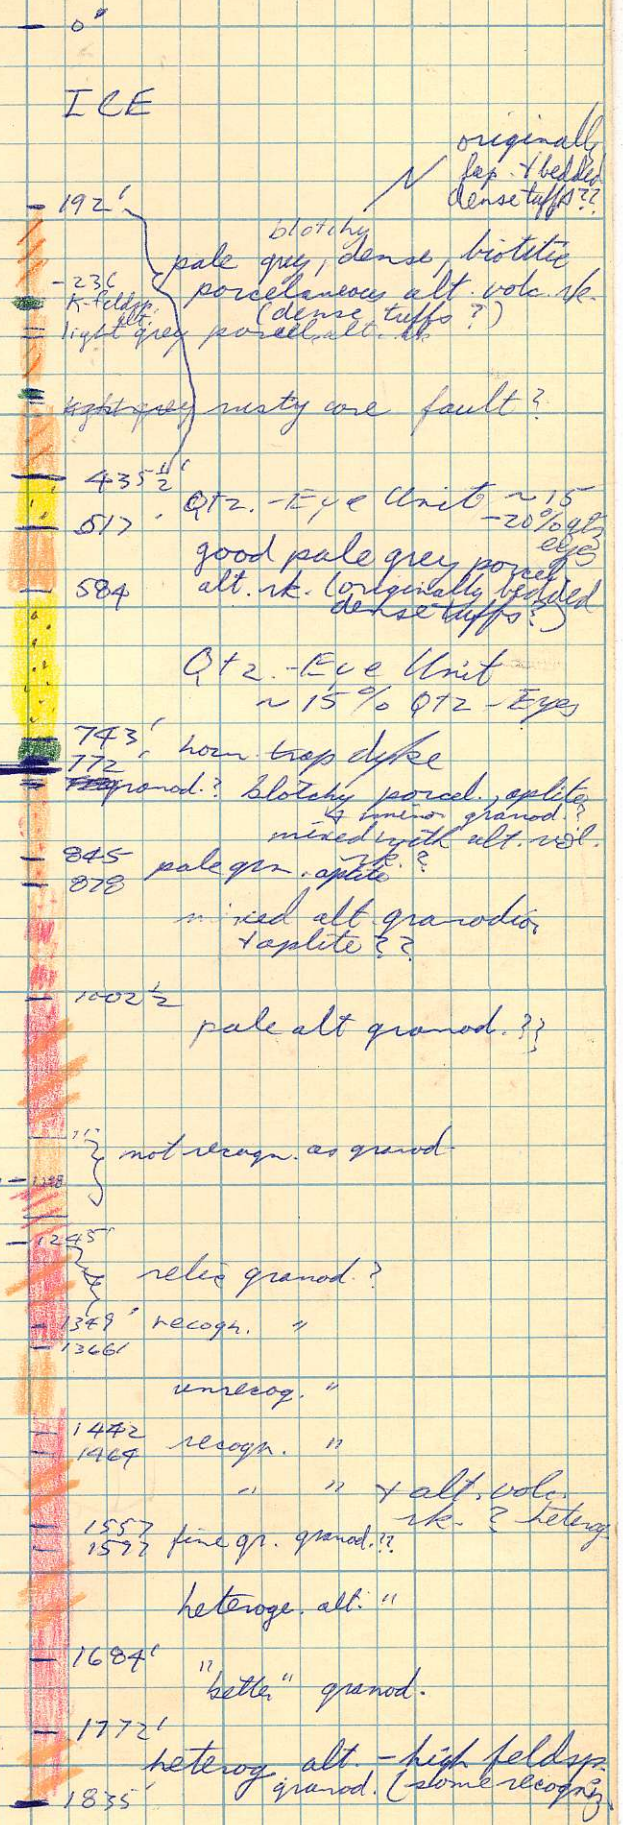 0'
ICE
originally
lap. + bedded
dense tuffs??
192'
blotchy
pale grey, dense, biotitic
-236
porcelaneous alt. volc. rk.
K-feldsp.
alt.
(dense tuffs?)
light grey porcel. alt. rk
light grey rusty core fault?
435 1/2'
Qtz.-Eye Unit ~15
-20% qtz
eyes
517'
good pale grey porcel.
584
alt. rk. (originally bedded
dense tuffs?)
Qtz.-Eye Unit
~15% Qtz-Eyes
743'
772'
horn. trap dyke
granod.? blotchy porcel., aplite
+ minor granod.?
mixed with alt. vol.
rk.?
845
878
pale grn. aplite
mixed alt. granodior.
+ aplite??
1002 1/2
pale alt granod.??
not recogn. as granod.
1245'
relic granod.?
1349' recogn. "
1366'
unrecog. "
1442
1464
recogn. "
" " + alt. volc.
rk.? heterog.
1557
1597
fine gr. granod.??
heteroge. alt. "
1684'
"better" granod.
1772'
heterog alt. - high feldsp.
granod. (some recogniz.
1835'